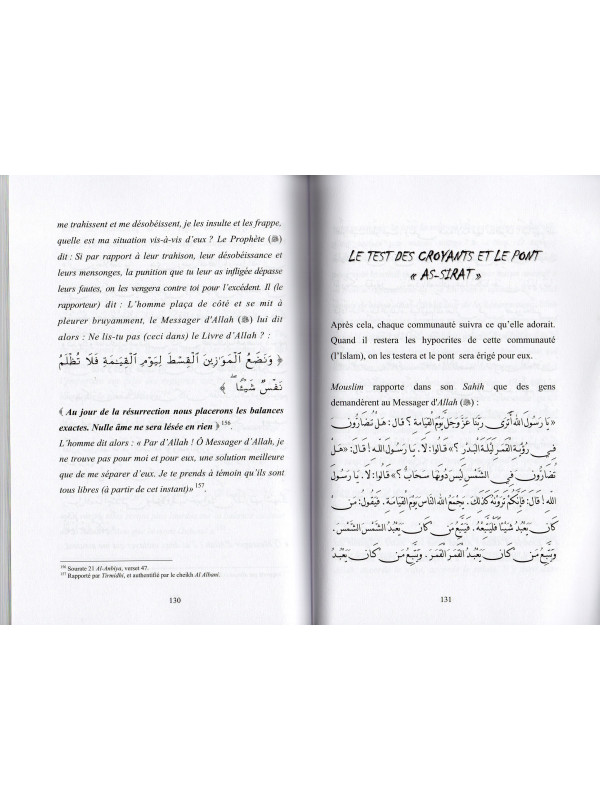 me trahissent et me désobéissent, je les insulte et les frappe,
quelle est ma situation vis-à-vis d'eux ? Le Prophète (ﷺ)
dit : Si par rapport à leur trahison, leur désobéissance et
leurs mensonges, la punition que tu leur as infligée dépasse
leurs fautes, on les vengera contre toi pour l'excédent. Il (le
rapporteur) dit : L'homme plaça de côté et se mit à
pleurer bruyamment, le Messager d'Allah (ﷺ) lui dit
alors : Ne lis-tu pas (ceci) dans le Livre d'Allah ? :
﴿ وَنَضَعُ ٱلْمَوَٰزِينَ ٱلْقِسْطَ لِيَوْمِ ٱلْقِيَٰمَةِ فَلَا تُظْلَمُ
نَفْسٌ شَيْـًٔا ۖ ﴾
﴾ Au jour de la résurrection nous placerons les balances
exactes. Nulle âme ne sera lésée en rien ﴿ 156.
L'homme dit alors : « Par d'Allah ! Ô Messager d'Allah, je
ne trouve pas pour moi et pour eux, une solution meilleure
que de me séparer d'eux. Je te prends à témoin qu'ils sont
tous libres (à partir de cet instant)» 157.
156 Sourate 21 Al-Anbiya, verset 47.
157 Rapporté par Tirmidhi, et authentifié par le cheikh Al Albani.
130
LE TEST DES CROYANTS ET LE PONT
« AS-SIRAT »
Après cela, chaque communauté suivra ce qu'elle adorait.
Quand il restera les hypocrites de cette communauté
(l'Islam), on les testera et le pont sera érigé pour eux.
Mouslim rapporte dans son Sahih que des gens
demandèrent au Messager d'Allah (ﷺ) :
«يَا رَسُولَ اللهِ أَنَرَى رَبَّنَا عَزَّ وَجَلَّ يَوْمَ الْقِيَامَةِ ؟ قَالَ : هَلْ تُضَارُّونَ
فِي رُؤْيَةِ الْقَمَرِ لَيْلَةَ الْبَدْرِ ؟» قَالُوا : لَا . يَا رَسُولَ اللهِ . قَالَ : «هَلْ
تُضَارُّونَ فِي الشَّمْسِ لَيْسَ دُونَهَا سَحَابٌ ؟» قَالُوا : لَا . يَا رَسُولَ
اللهِ ! قَالَ : فَإِنَّكُمْ تَرَوْنَهُ كَذَلِكَ . يَجْمَعُ اللهُ النَّاسَ يَوْمَ الْقِيَامَةِ . فَيَقُولُ : مَنْ
كَانَ يَعْبُدُ شَيْئًا فَلْيَتَّبِعْهُ . فَيَتَّبِعُ مَنْ كَانَ يَعْبُدُ الشَّمْسَ الشَّمْسَ .
وَيَتَّبِعُ مَنْ كَانَ يَعْبُدُ الْقَمَرَ الْقَمَرَ . وَيَتَّبِعُ مَنْ كَانَ يَعْبُدُ
131